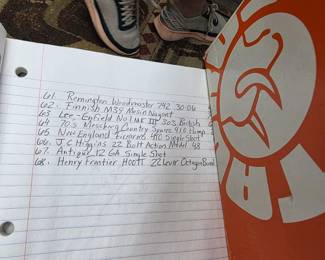 61. Remington Woodmaster 742 30.06
62. Finnish M39 Mosin Nagant
63 Lee-Enfield No1 MK III .303 British
64 70's Mossberg Country Squire 410 Pump
65 New England Firearms 410 Single Shot
66. J C Higgins 22 Bolt Action Model 48
67. Antique 12 GA Single Shot
68. Henry Frontier H001T 22 Lever Octagon Barrel